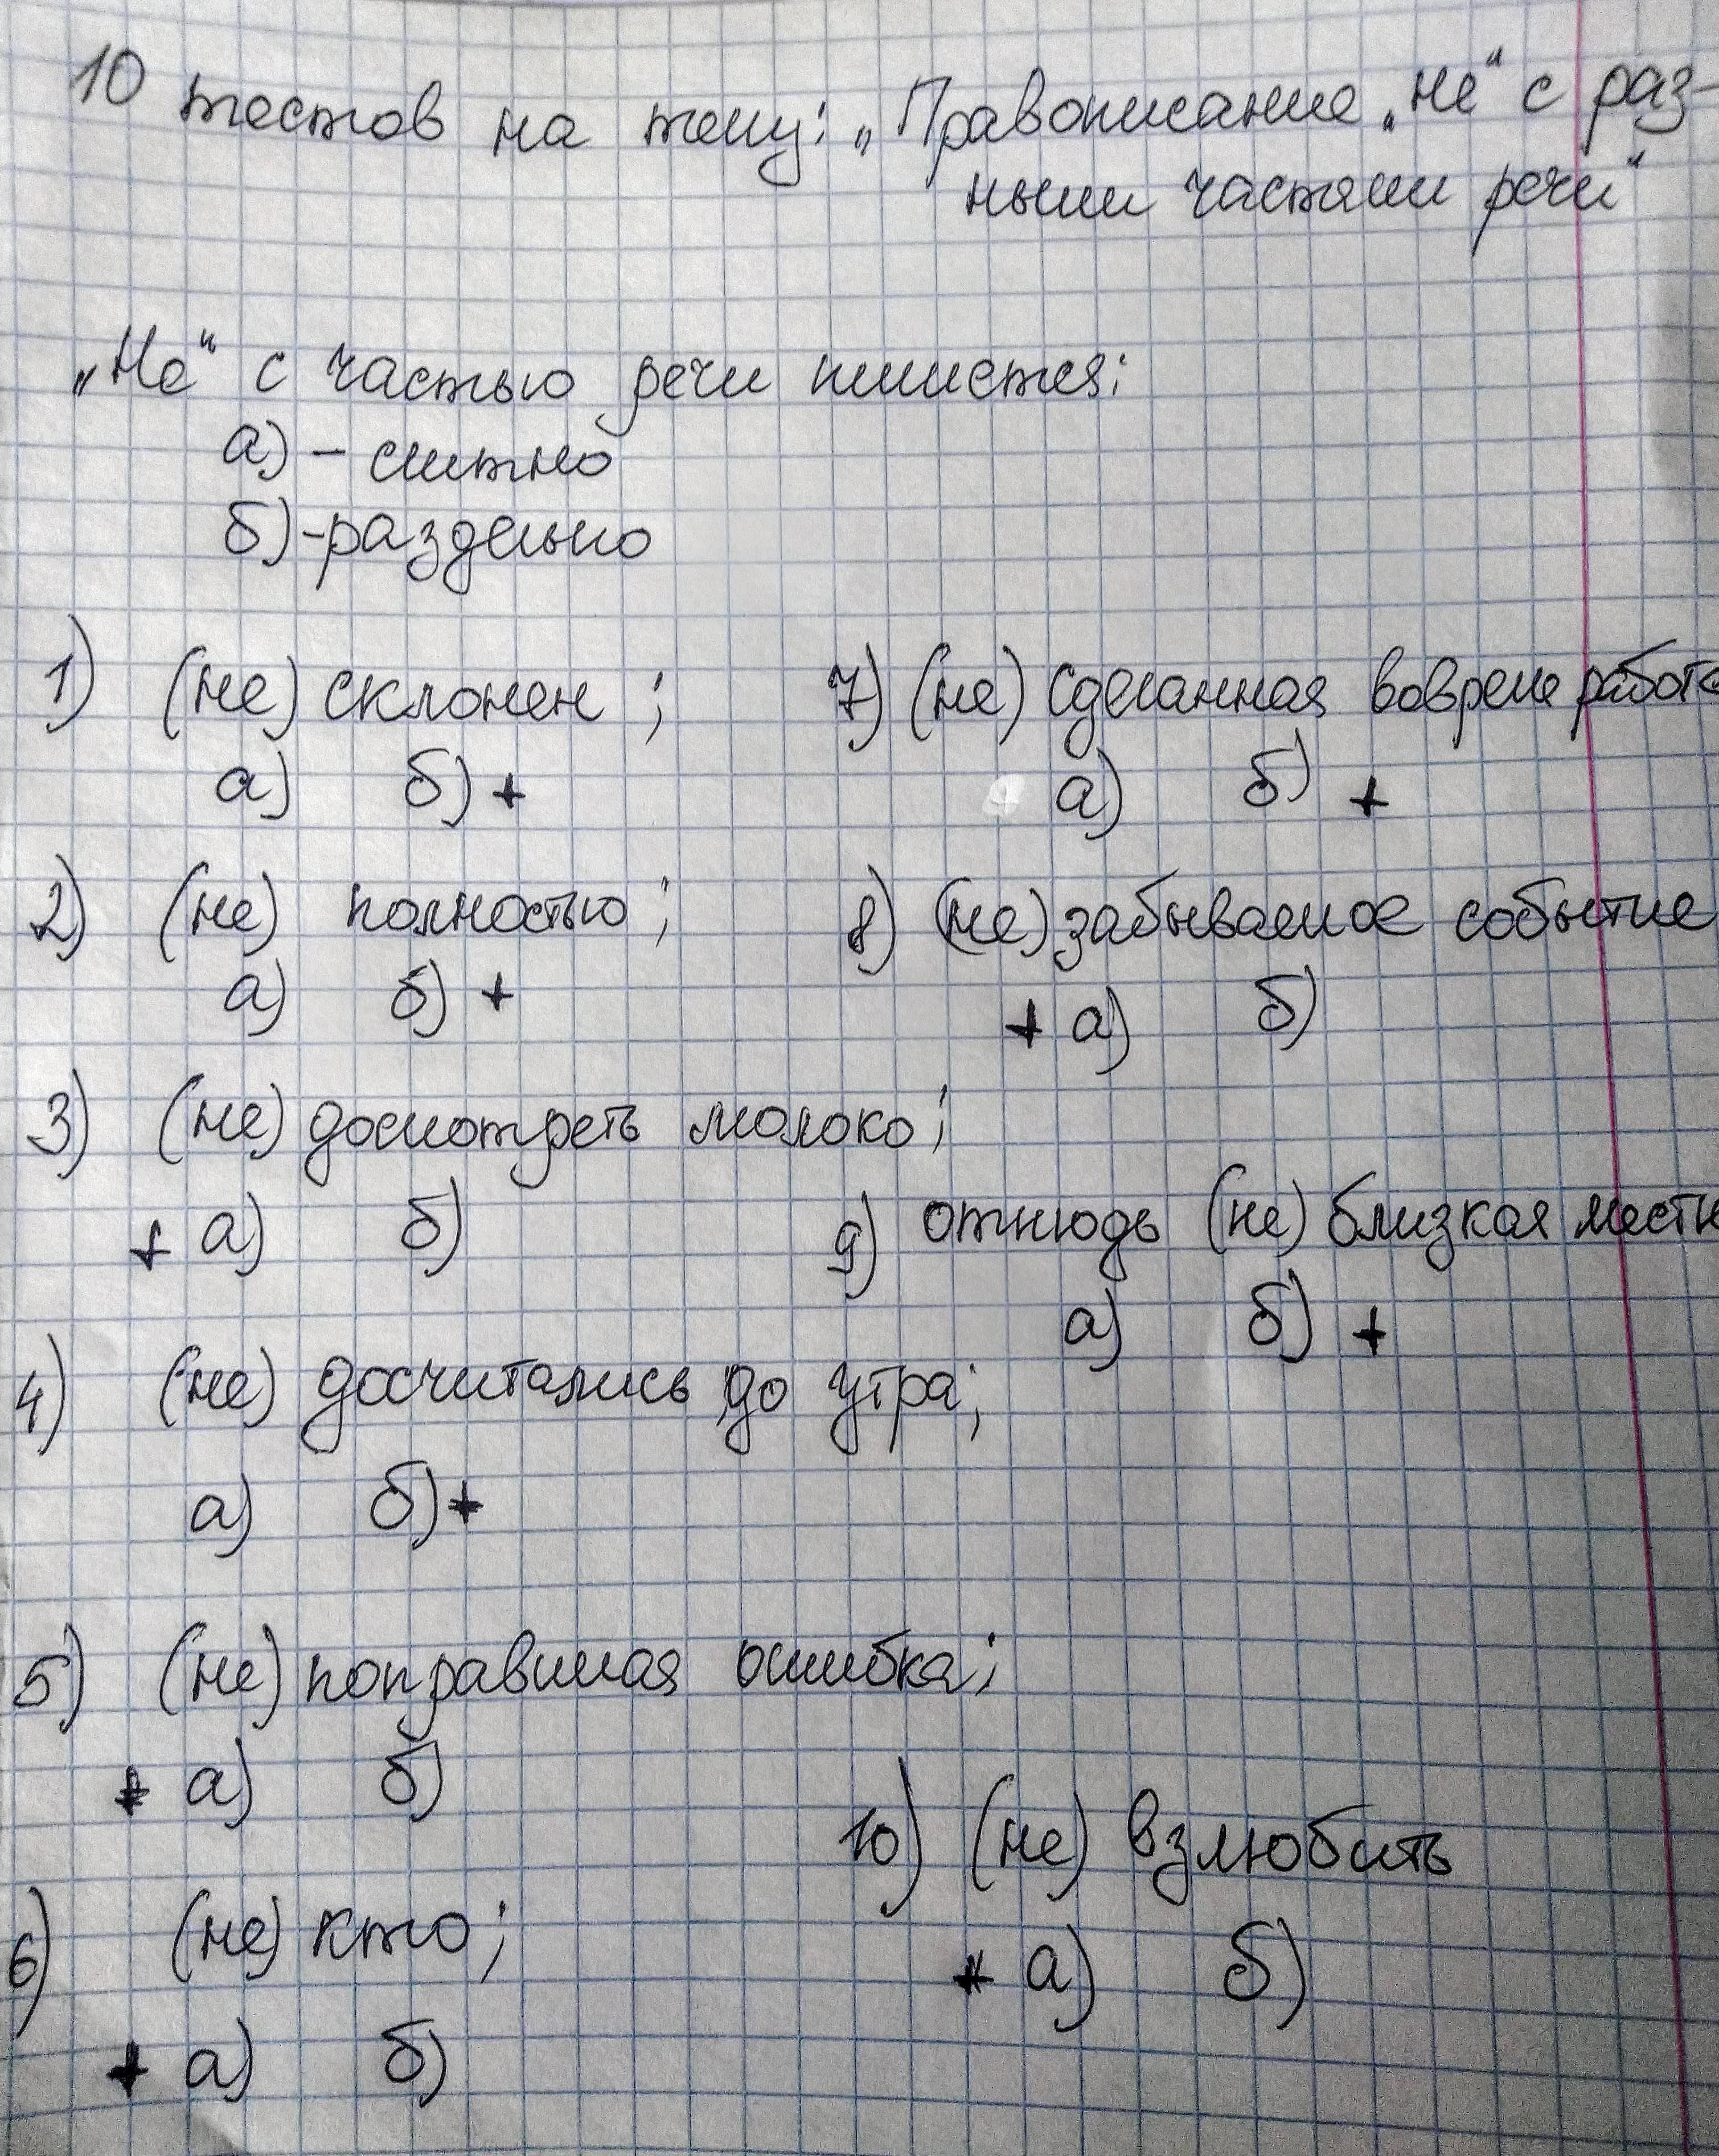 10 тестов на тему: „Правописание „не“ с раз-
ными частями речи“
„Не“ с частью речи пишется:
а) – слитно
б) -раздельно
1) (не) склонен ;
а) б) +
2) (не) полностью;
а) б) +
3) (не) досмотреть молоко;
+ а) б)
4) (не) досчитались до утра;
а) б) +
5) (не) поправимая ошибка;
+ а) б)
6) (не) кто;
+ а) б)
7) (не) сделанная вовремя работа
а) б) +
8) (не) забываемое событие
+ а) б)
9) отнюдь (не) близкая
а) б) +
10) (не) взлюбить
+ а) б)